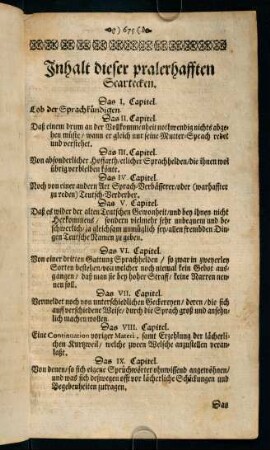 Inhalt dieser pralerhafften
Scartecken.
Das I. Capitel.
Lob der Sprachkündigten.
Das II. Capitel.
Daß einem drum an der Vollkommenheit nothwendig nichts abge-
hen müste/ wann er gleich nur seine Mutter-Sprach redet
und verstehet.
Das III. Capitel.
Von absonderlicher Hoffart etlicher Sprachhelden/ die ihnen wol
übrig verbleiben könte.
Das IV. Capitel.
Noch von einer andern Art Sprach-Verbässerer/ oder (warhaffter
zu reden) Teutsch-Verderber.
Das V. Capitel.
Daß es wider der alten Teutschen Gewonheit/ und bey ihnen nicht
Herkommens/ sondern vielmehr sehr unbequem und be-
schwerlich/ ja gleichsam unmüglich sey/ allen frembden Din-
gen Teutsche Namen zu geben.
Das VI. Capitel.
Von einer dritten Gattung Sprachhelden/ so zwar in zweyerley
Sorten bestehen/ von welcher noch niemal kein Gebot aus-
gangen/ daß man sie bey hoher Straff/ keine Narren nen-
nen soll.
Das VII. Capitel.
Vermeldet noch von unterschiedlichen Geckereyen/ deren/ die sich
auff verschiedene Weise/ durch die Sprach groß und ansehn-
lich machen wollen.
Das VIII. Capitel.
Eine Continuation voriger Materi, samt Erzehlung der lächerli-
chen Kurtzweil/ welche zween Welsche anzustellen veran-
last.
Das IX. Capitel.
Von denen/ so sich eigene Sprüchwörter ohnwissend angewöhnen/
und was sich deswegen offt vor lächerliche Schickungen und
Begebenheiten zutragen.
Das